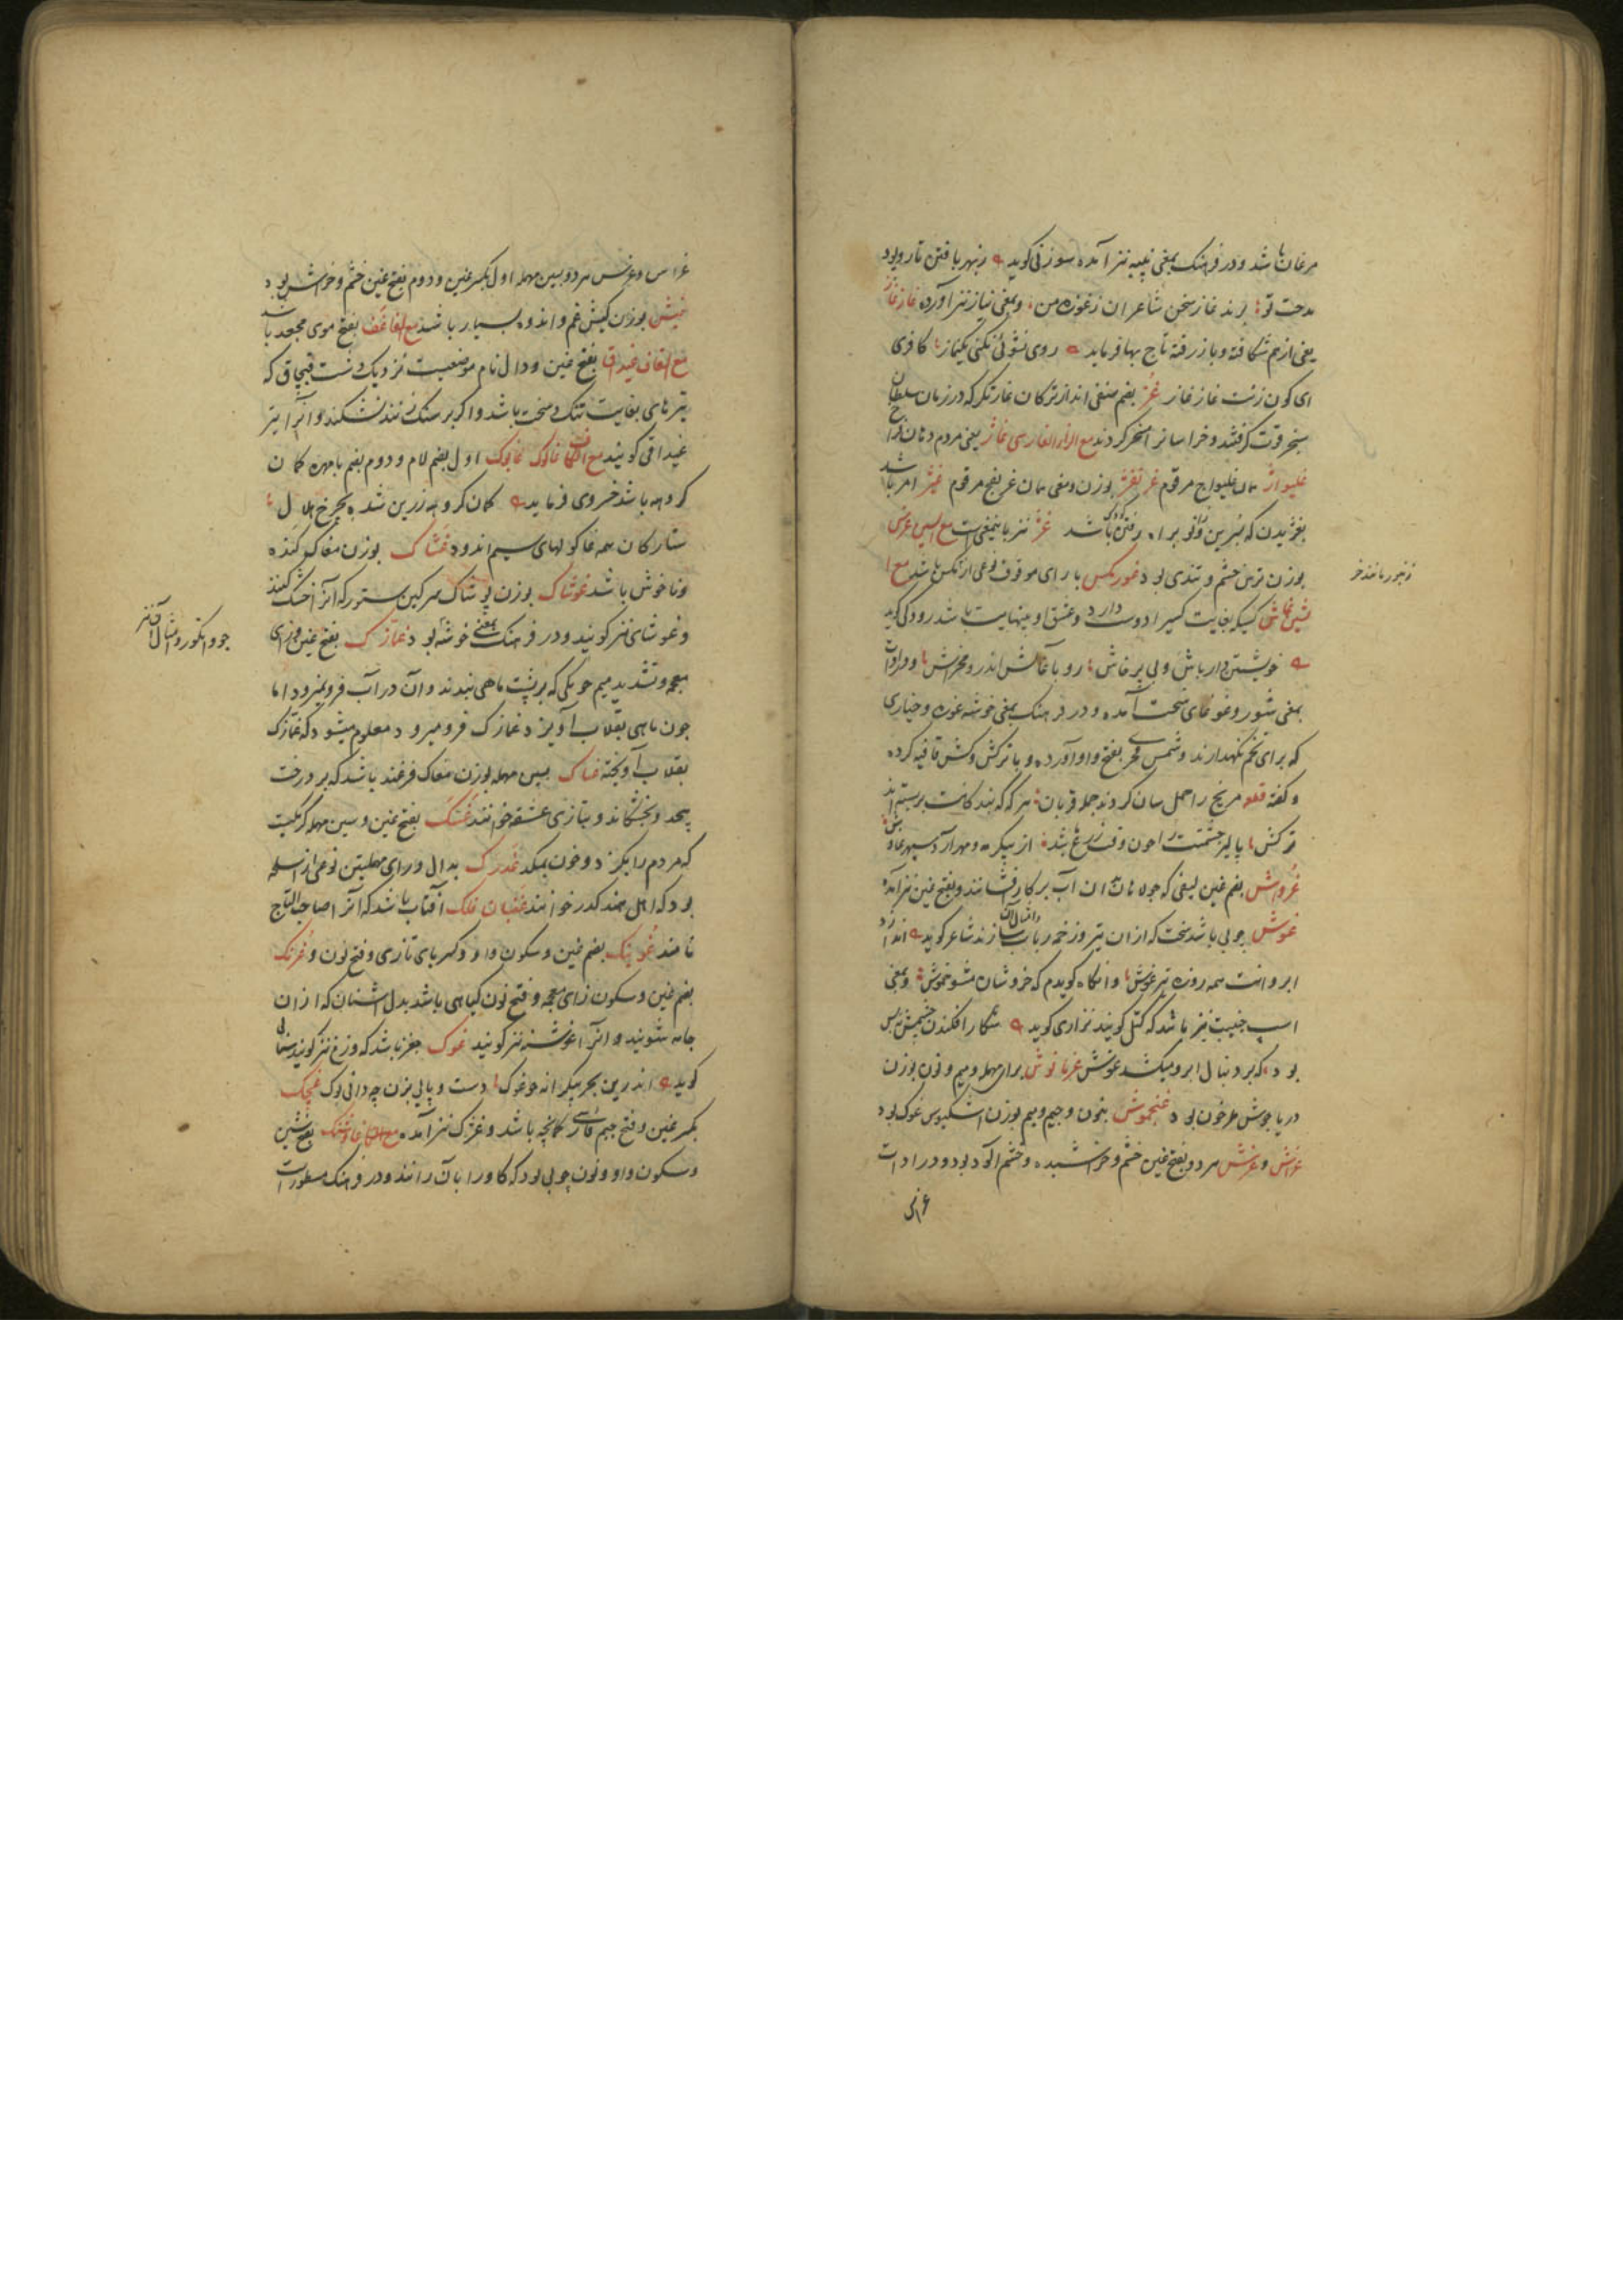 مرغان باشد و در فرهنک بمعنی پنبه نیز آمده سوزنی کوید زبهر بافتن تار و پود
مدحت تو برند غاز سخن شاعران زغوزه من وبمعنی نیاز نیز آورده غاز غاز
یعنی از هم شکافته و باز رفته تاج بها فرماید روی نشوئی نکنی یکنماز کافری
ای کون زنت غاز غاز غز بضم صنفی اند از ترکان غارتکر که در زمان سلطان
سنجر قوت کرفتند و خراسانرا مسخر کردند مع الزاء الفارسی غاژ یعنی مردم دهان فراخ
غلیواژ همان غلیواج مرقوم غر بوزن ومعنی همان غر بفتح مرقوم غیژ امر باشد
بغژیدن که بسرین و زانو براه رفتن کودک باشد غژ نیز باینمعنی است مع السین غرس
بوزن ترس خشم و تندی بود غورمکس بارای موقوف نوعی از مکس باشد مع ا
لشین غاش کسیکه بغایت کسیرا دوست دارد و عشق او بینهایت باشد رودکی کوید
خویشتن دار باش و بی پرخاش رو با غاش اندرو مخراش و در ادات
بمعنی شور و غوغای سخت آمده و در فرهنک بمعنی خوشه غوره و خیاری
که برای تخم نکهدارند و شمس فخری بفتح واو آورده و با ترکش وکش قافیه کرده
و کفته قطعه مریخ را حمل سان کردند جمله قربان هر که که بند کانت بر بستهاند
ترکش پالیز حشمتت را چون وقت زرع باشد از پیکر مه و مهر آرد سپهر غاوش
غرواش بضم غین لیفی که جولاهان بدان آب بر کار فشانند و بفتح غین نیز آمده
غوش چوبی باشد سخت که از ان تیر و زخمه رباب و امثال آن سازند شاعر کوید اندازد
ابروانت همه روزه تیر غوش وانکاه کویدم که خروشان مشو خموش وبمعنی
اسپ جنیبت نیز باشد که کتل کویند نزاری کوید شکار افکندن خشمش پس
بود که بر دنبال ابرو میکشد غوش غرمانوش برای مهمله و میم و نون بوزن
دریا جوش طرخون بود غنجموش بنون و جیم و میم بوزن اشکبوس غوک بود
غراش و غرش هر دو بفتح غین خشم و خراشیده و خشم آلود بود و در ادات
غراس و غرس هر دو بسین مهمله اول بکسر غین و دوم بفتح غین خشم و خراش بود
غیش بوزن کیش غم و اندوه بسیار باشد مع الفا غف بفتح موی مجعد باشد
مع القاف غیداق بفتح غین و دال نام موضعیست نزدیک دشت قبچاق که
تیرهای بغایت تنک و سخت باشد و اکر بر سنک زنند نشکند و آنرا تیر
غیداقی کویند مع الکاف غالوک غالوک اول بضم لام و دوم بضم با مهره کمان
کروهه باشد خسروی فرماید کمان کروهه زرین شده بچرخ هلال
ستارکان همه غالوکهای سیم اندود غشاک بوزن مغاک کنده
و ناخوش باشد غوشاک بوزن پوشاک سرکین ستور که آنرا خشک کنند
و غوشای نیز کویند و در فرهنک بمعنی خوشه بود غمازک بفتح غین و زای
معجمه و تشدید میم چوبکی که بر پشت ماهی بندند و آن در آب فرو نمیرود اما
چون ماهی بقلاب آویزد غمازک فرو میرود معلوم میشود که غمازک
بقلاب آویخته غساک بسین مهمله بوزن مغاک فرغند باشد که بر درخت
پیچد و بخشکاند و بتازی عشقه خوانند غسک بفتح غین و سین مهمله کرمکیست
که مردم را بکزد و خون بمکد غدرک بدال و رای مهملتین نوعی از اسلحه
بود که اهل هند کدر خوانند غضبان فلک آفتاب باشد که آنرا صاحب التاج
نامند غوبنک بضم غین و سکون واو و کسر بای تازی و فتح نون و غزنک
بضم غین و سکون زای معجمه و فتح نون کیاهی باشد بدل اشنان که از ان
جامه شویند و آنرا غوشنه نیز کویند غوک جغز باشد که وزغ نیز کویند سنائی
کوید اندرین بحر بیکرانه چو غوک دست و پایی بزن چه دانی بوک غچک
بکسر غین و فتح جیم فارسی کمانچه باشد و غژک نیز آمده مع الکاف غاوشنک بفتح شین
و سکون واو و نون چوبی بود که کاو را بآن رانند و در فرهنک مسطور است